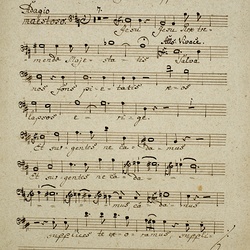 Adagio
maestoso. 7. Jesu Jesu Rex tre-
All: Vivace.
mendae Majes - ta - tis Salva
nos fons pi - e - ta - tis nos
lapsos e - ri - ge.
Et sur - gentes ne ca - da -
Et sur - gentes ne ca - da -
- mus ca - da - mus
supplices te ro - ramus suppli